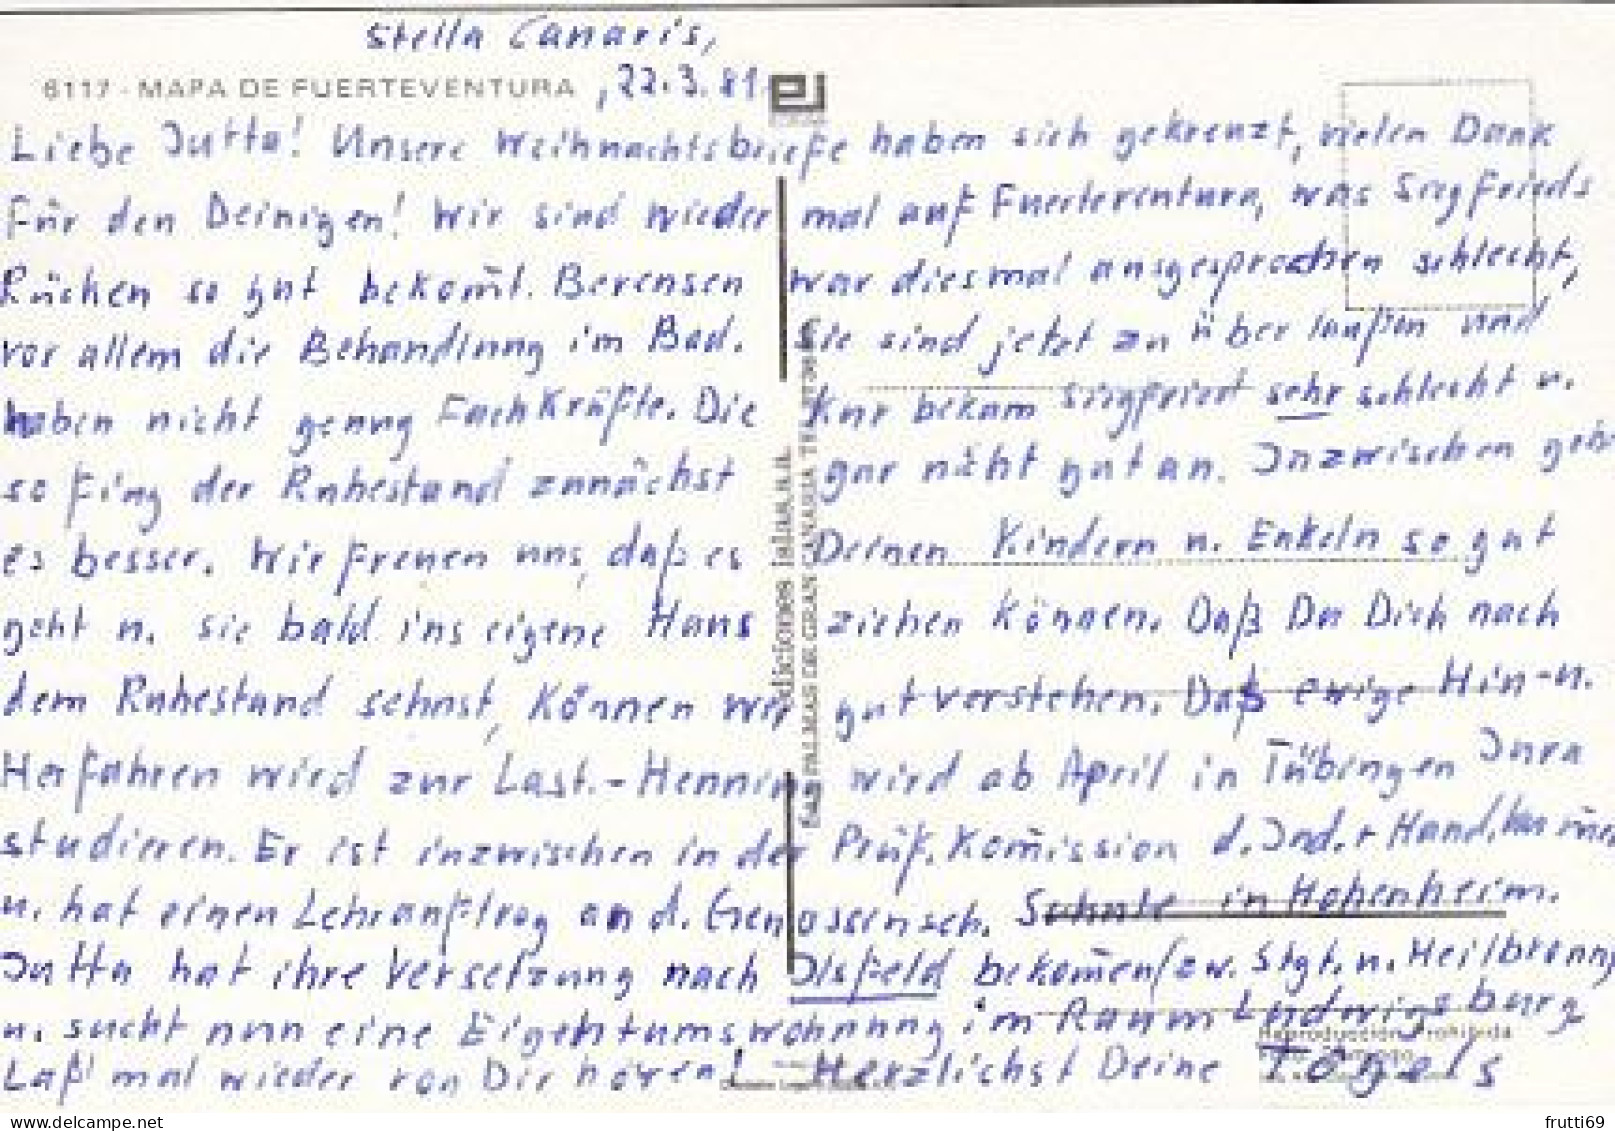 Stella Canaris,
6117 - MAPA DE FUERTEVENTURA , 22.3.81.
Liebe Jutta! Unsere Weihnachtsbriefe haben sich gekreuzt, vielen Dank
für den Deinigen! Wir sind wieder mal auf Fuerteventura, was Siegfrieds
Rücken so gut bekom̄t. Berensen war diesmal ausgesprochen schlecht,
vor allem die Behandlung im Bad. Sie sind jetzt zu überlaufen und
haben nicht genug Fachkräfte. Die Kur bekam Siegfried sehr schlecht u.
so fing der Ruhestand zunächst gar nicht gut an. Inzwischen geht
es besser. Wir freuen uns, daß es Deinen Kindern u. Enkeln so gut
geht u. sie bald ins eigene Haus ziehen können. Daß Du Dich nach
dem Ruhestand sehnst, können wir gut verstehen. Daß ewige Hin- u.
Herfahren wird zur Last. - Henning wird ab April in Tübingen Jura
studieren. Er ist inzwischen in der Prüf. Kom̄ission d. Ind. + Hand.
u. hat einen Lehrauftrag an d. Genossensch. Schule in Hohenheim.
Jutta hat ihre Versetzung nach Ilsfeld bekom̄en (zw. Stgt. u. Heilbronn)
u. sucht nun eine Eigentumswohnung im Raum Ludwigsburg
Laß' mal wieder von Dir hören! — Herzlichst Deine Tögels
ediciones islas, s.a.
LAS PALMAS DE GRAN CANARIA
Reproducción Prohibida
www.delcampe.net
frutti69